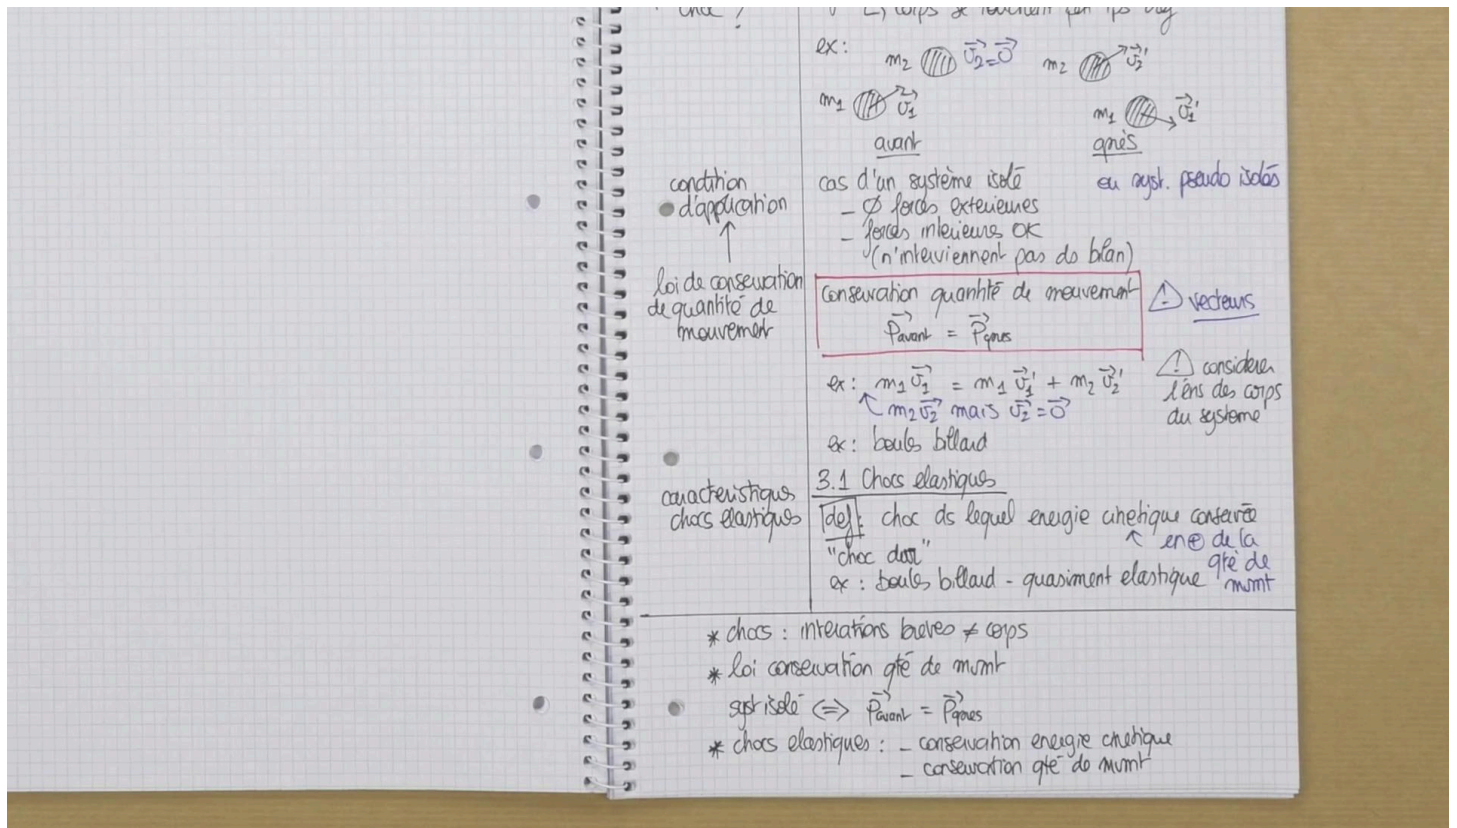 choc ?
↳ corps se touchent pen tps
ex:
m2 v2=0
m2 v2'
m1 v1
m1 v1'
avant
après
condition
d'application
↑
loi de conservation
de quantité de
mouvement
cas d'un système isolé
ou syst. pseudo isolés
- Ø forces exterieures
- forces interieures OK
(n'interviennent pas ds bilan)
conservation quantité de mouvement
⚠ vecteurs
P⃗avant = P⃗apres
ex: m1 v⃗1 = m1 v⃗1' + m2 v⃗2'
↖ m2 v⃗2 mais v⃗2 = 0⃗
⚠ considerer
l'ens des corps
du systeme
ex: boules billard
3.1 Chocs elastiques
caracteristiques
chocs elastiques
def: choc ds lequel energie cinetique conservée
↖ en ⊕ de la
qté de
mvmt
"choc dur"
ex: boules billard - quasiment elastique
* chocs : interations breves ≠ corps
* loi conservation qté de mvmt
syst isolé <=> P⃗avant = P⃗apres
* chocs elastiques : - conservation energie cinetique
- conservation qté de mvmt